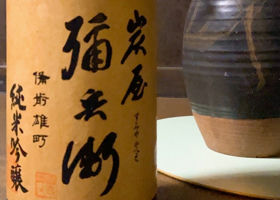 炭屋
すみややへえ
彌兵衛
備前雄町
純米吟醸